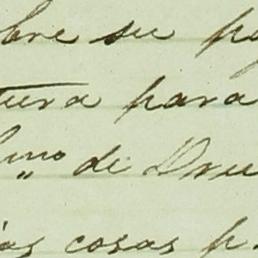 bre su p
tura para
mo de Dru
las cosas p